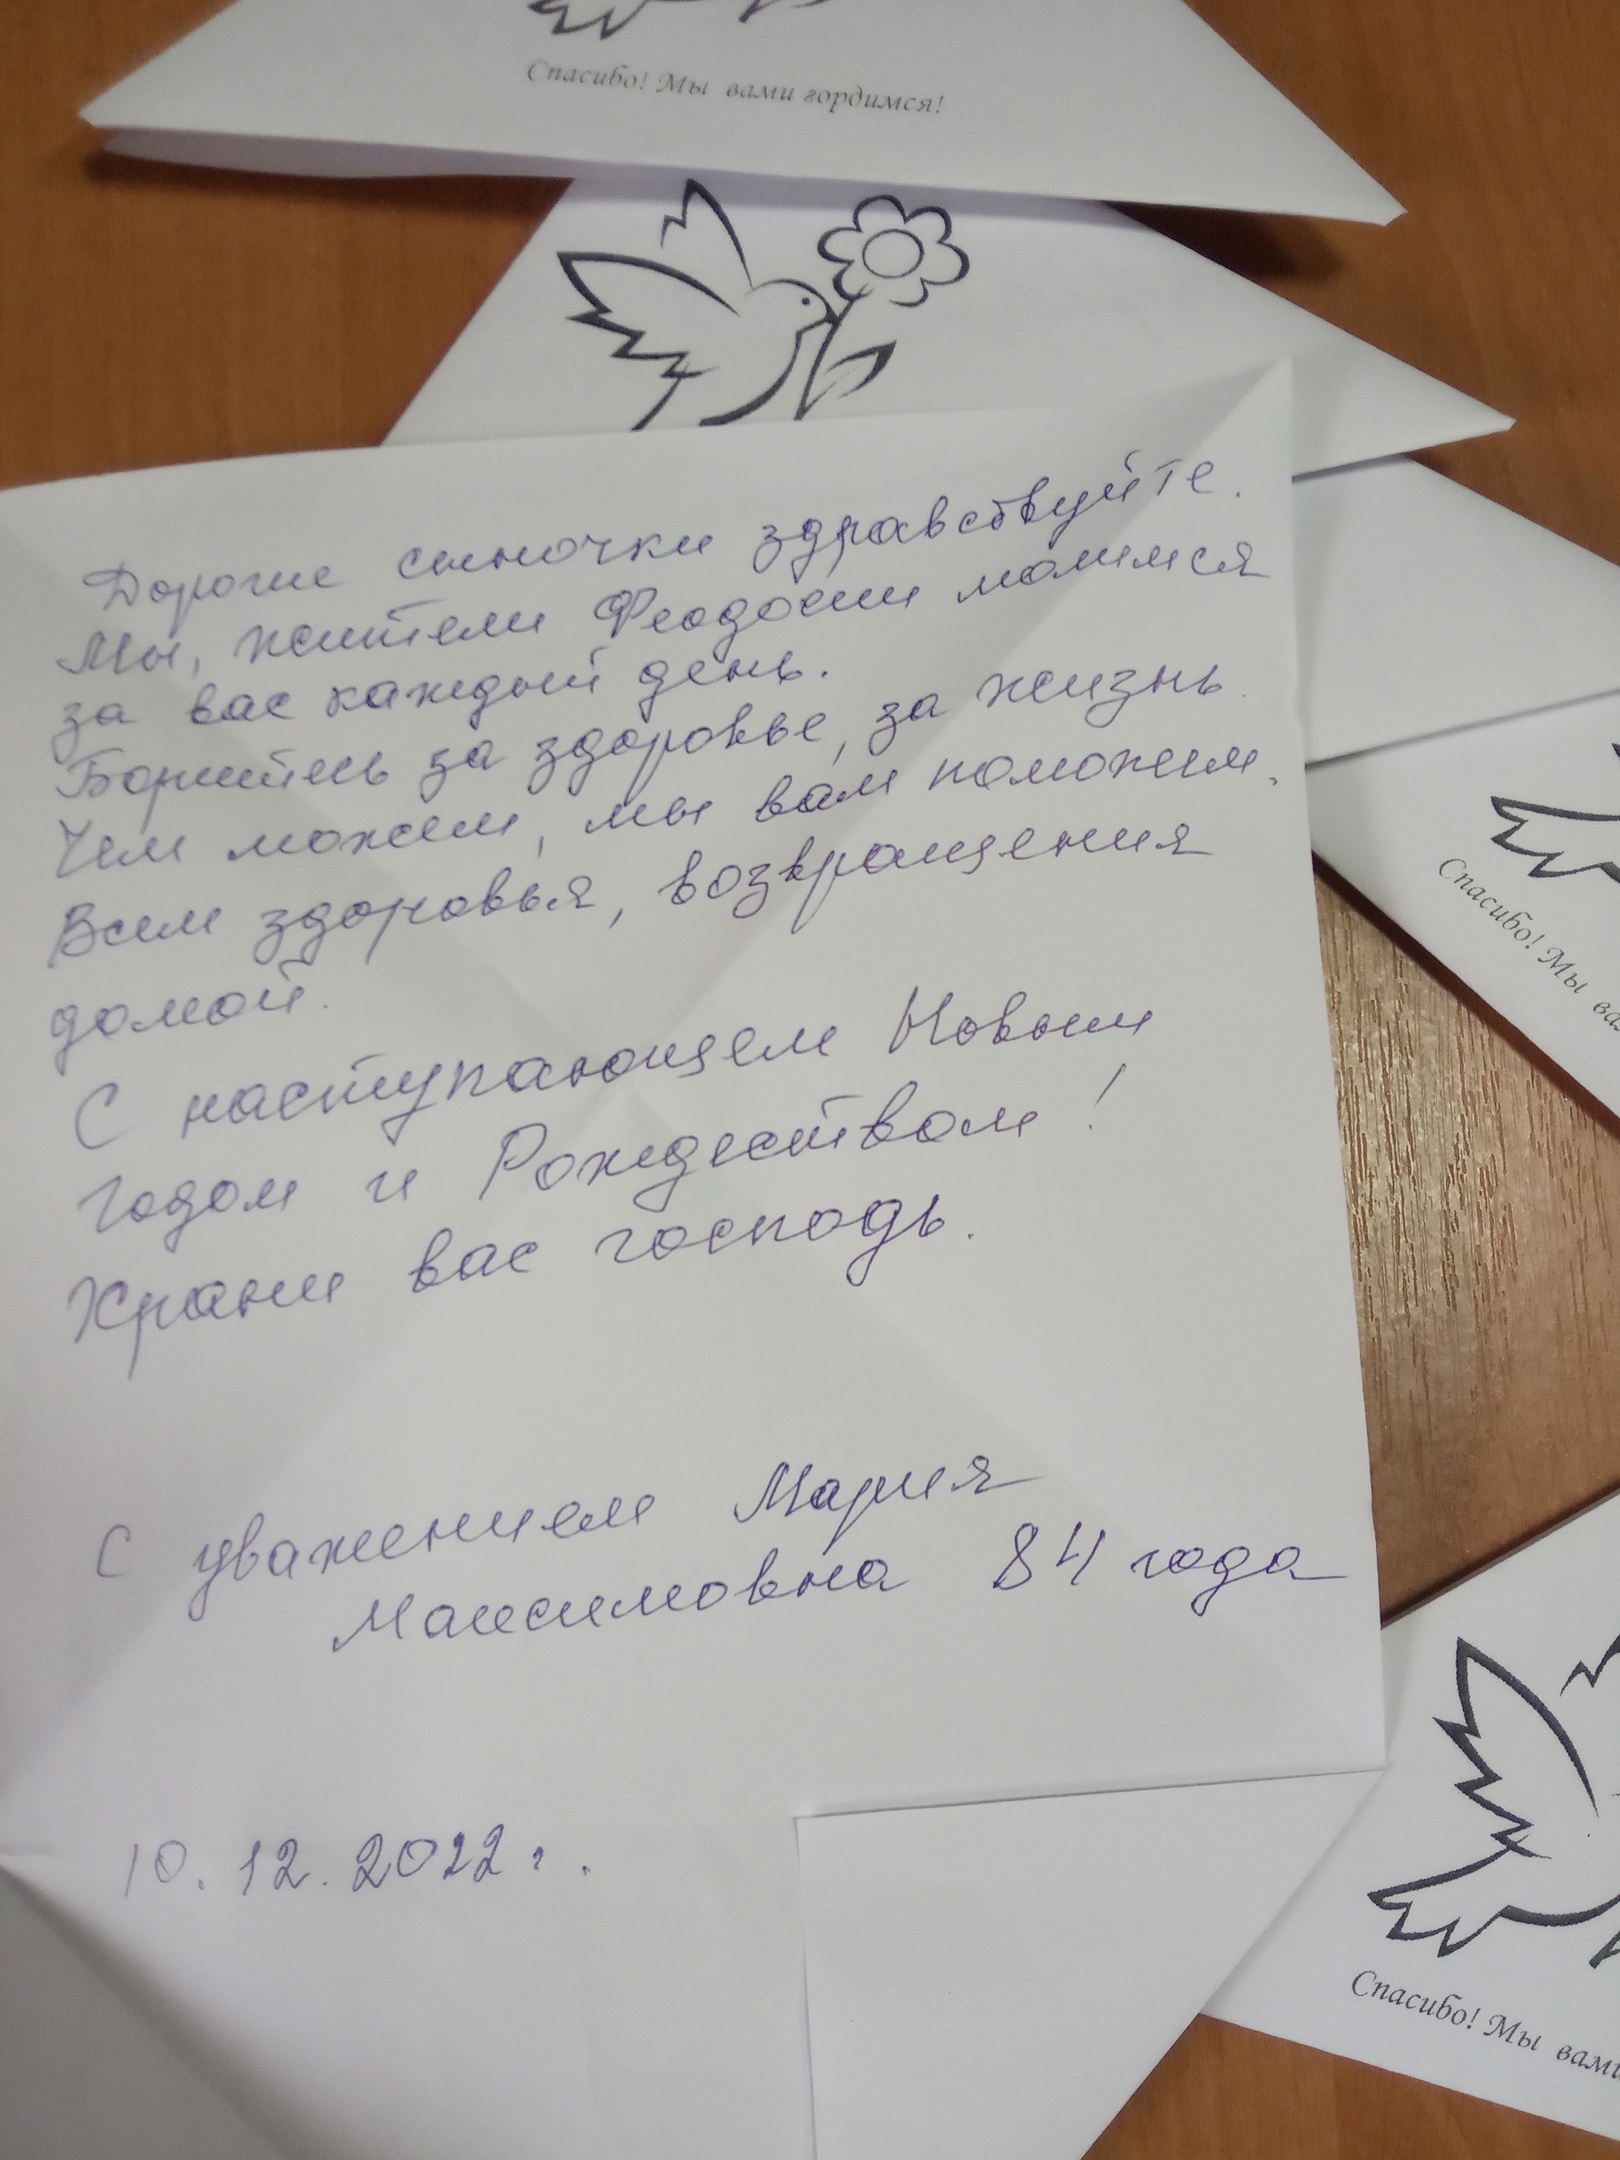 Спасибо! Мы вами гордимся!
Дорогие сыночки здравствуйте.
Мы, жители Феодосии молимся
за вас каждый день.
Боритесь за здоровье, за жизнь.
Чем можем, мы вам поможем.
Всем здоровья, возвращения
домой.
С наступающем Новым
годом и Рождеством!
Храни вас господь.
С уважением Мария
Максимовна 84 года
10.12.2022г.
Спасибо! Мы
Спасибо! Мы вами